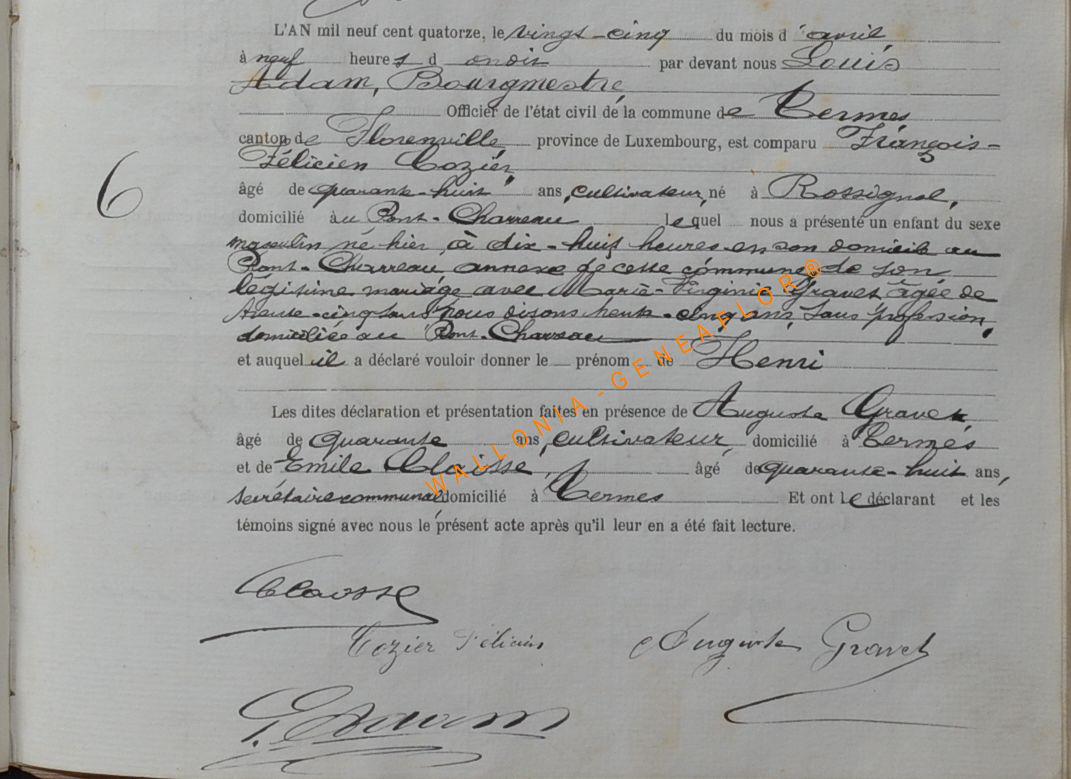 L'AN mil neuf cent quatorze, le vingt-cinq du mois d'avril,
à neuf heures d par devant nous Louis
Adam, Bourgmestre,
Officier de l'état civil de la commune de Termes
canton de Florenville, province de Luxembourg, est comparu François-
Félicien Cozier,
6
âgé de quarante-huit ans, cultivateur, né à Rossignol,
domicilié au Pont-Charreau lequel nous a présenté un enfant du sexe
masculin né hier, à dix-huit heures en son domicile au
Pont-Charreau, annexe de cette commune, de son
légitime mariage avec Marie-Virginie Gravet âgée de
trente-cinq ans, nous disons trente-cinq ans, sans profession,
domiciliée au Pont-Charreau
et auquel il a déclaré vouloir donner le prénom de Henri
Les dites déclaration et présentation faites en présence de Auguste Gravet,
âgé de quarante ans, cultivateur, domicilié à Termes
et de Emile Claisse, âgé de quarante-huit ans,
secrétaire communal domicilié à Termes Et ont le déclarant et les
témoins signé avec nous le présent acte après qu'il leur en a été fait lecture.
WALLONIA-GENEAFLOR®
Cozier Félicien Auguste Gravet